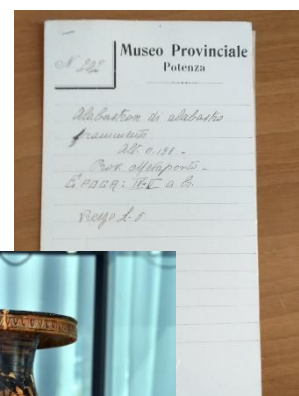 N. 222
Museo Provinciale
Potenza
Alabastron di alabastro
frammento
Alt. 0.198 -
Prov. Metaponto -
EPOCA: IV-V a. C.